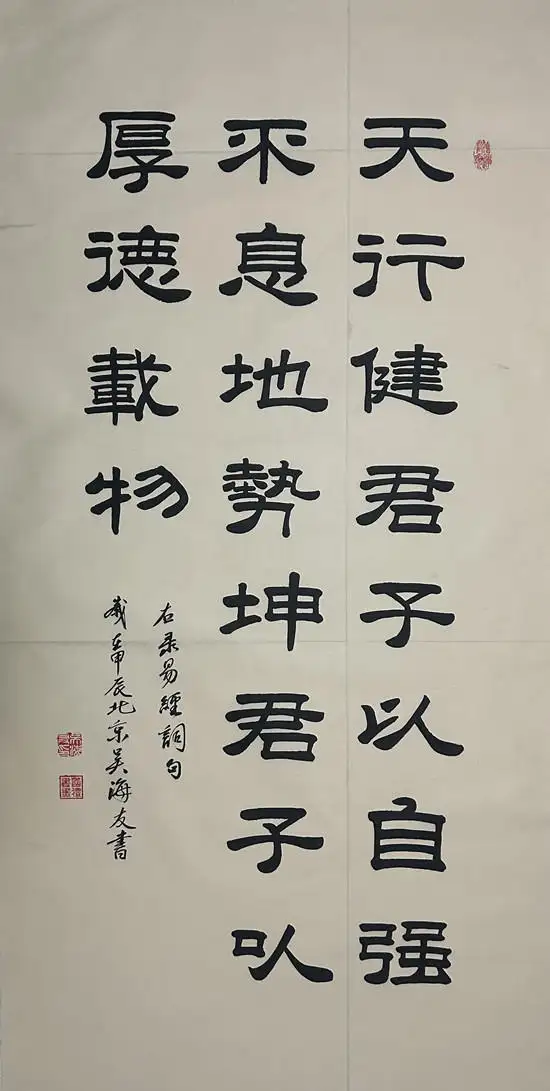 天行健君子以自强
不息地勢坤君子以
厚德載物
右录易經詞句
歲在甲辰北京吴海友書